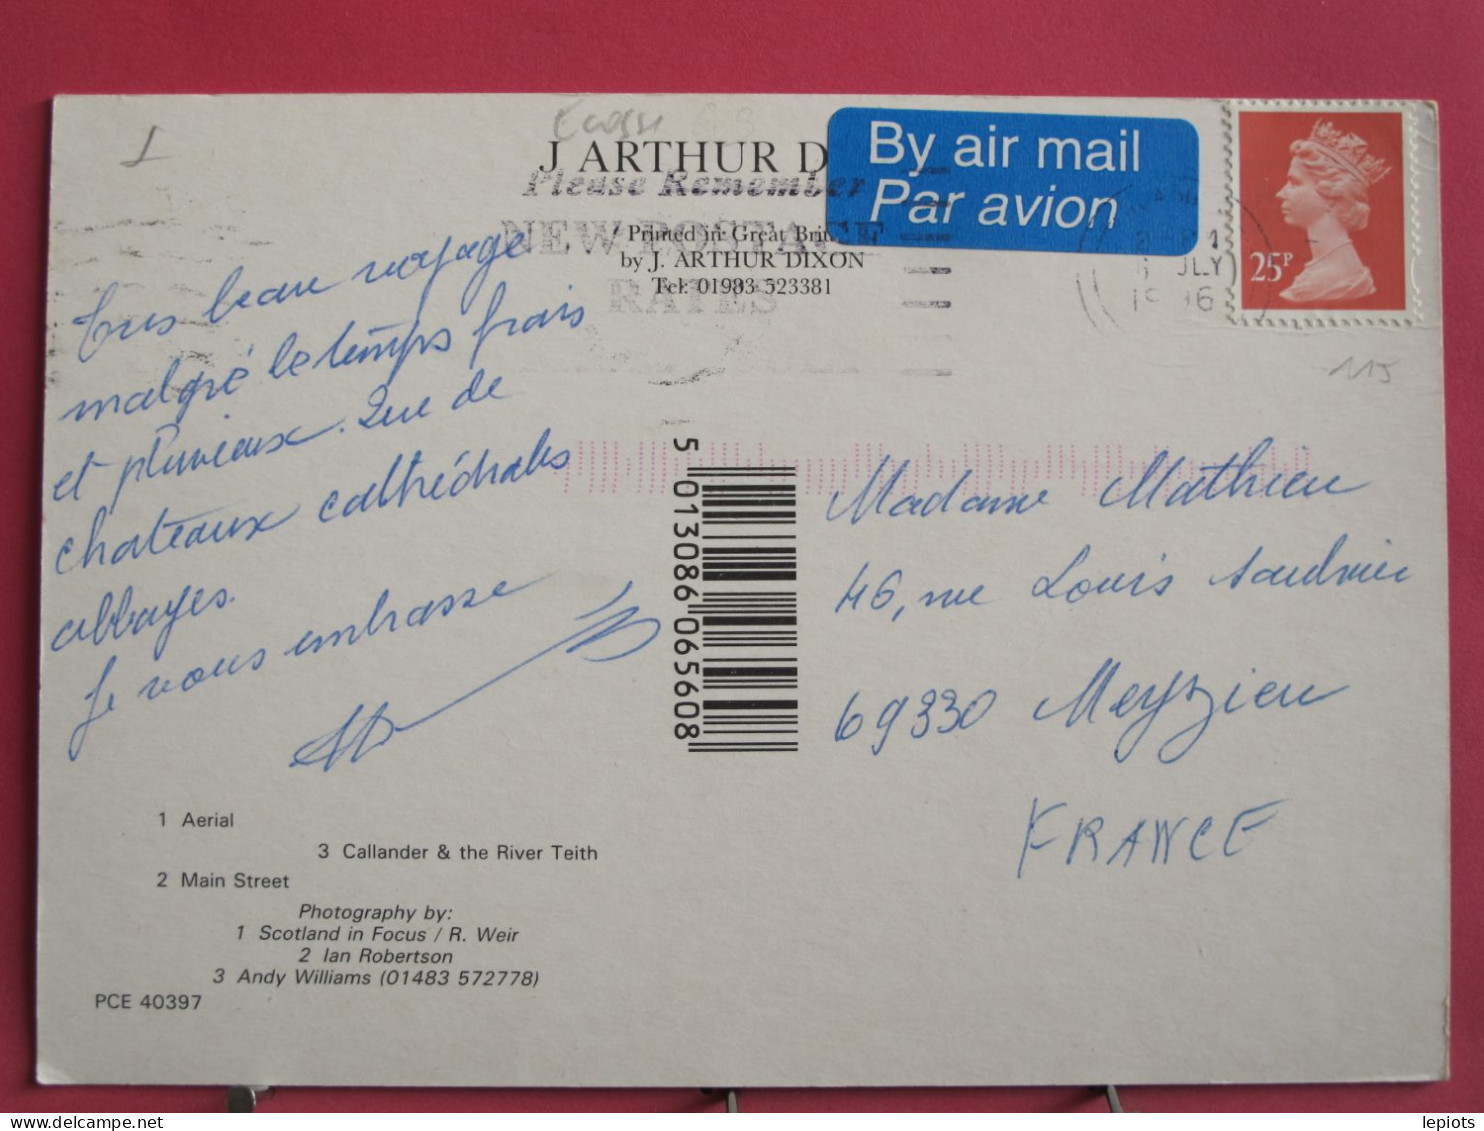 Ecosse
J ARTHUR D
By air mail
Par avion
Please Remember
NEW POSTAGE
RATES
Printed in Great Brit
by J. ARTHUR DIXON
Tel: 01983 523381
JLY
25P
115
Très beau voyage
malgré le temps frais
et pluvieux. Que de
chateaux cathédrales
abbayes.
Je vous embrasse
5 013086 065608
Madame Mathieu
46, rue Louis Saulnier
69330 Meyzieu
FRANCE
1 Aerial
3 Callander & the River Teith
2 Main Street
Photography by:
1 Scotland in Focus / R. Weir
2 Ian Robertson
3 Andy Williams (01483 572778)
PCE 40397
delcampe.net
lepiots